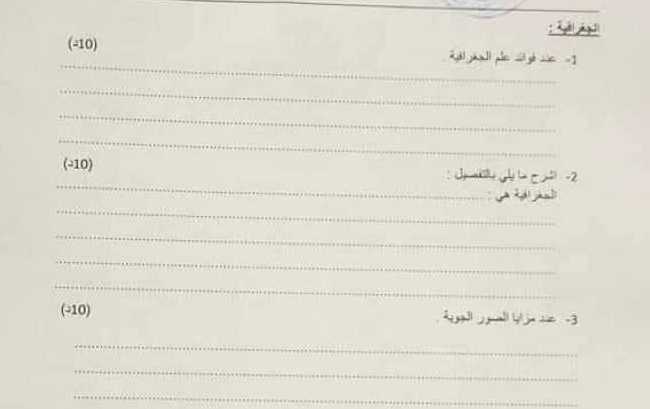 الجغرافية :
1- عدد فوائد علم الجغرافية . (10د)
2- اشرح ما يلي بالتفصيل : (10د)
الجغرافية هي :
3- عدد مزايا الصور الجوية . (10د)